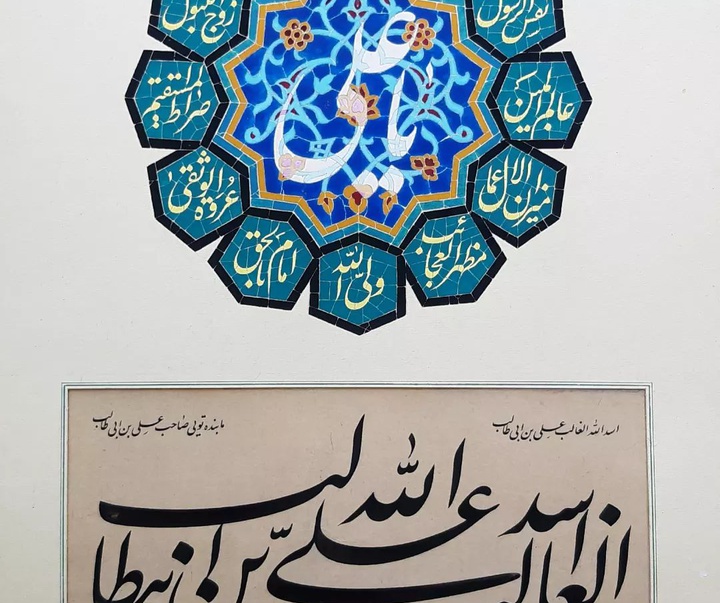 یا علی
نفس الرسول
عالم المبین
میزان الاعمال
مظهر العجائب
ولی الله
امام بالحق
عروة الوثقی
صراط المستقیم
زوج البتول
اسد الله الغالب علی بن ابی طالب
ما بنده تویی صاحب علی بن ابی طالب
اسد الله الغالب علی بن ابی طالب